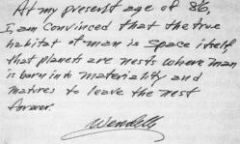 At my present age of 86,
I am convinced that the true
habitat of man is space itself
that planets are nests where man
is born into materiality and
matures to leave the nest
forever.
Wendell